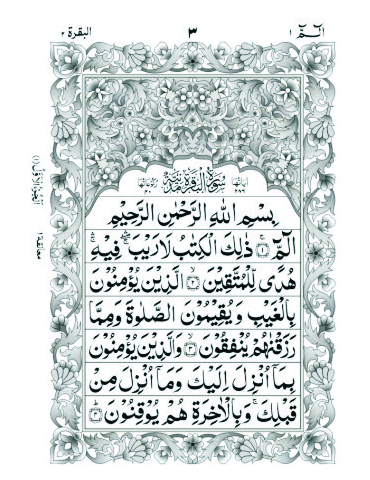 الٓمّٓ ١
٣
البقرة ٢
اٰیاتها ٢٨٦ سُوْرَةُ الْبَقَرَةِ مَدَنِيَّةٌ رکوعاتها ٤٠
بِسْمِ اللّٰهِ الرَّحْمٰنِ الرَّحِيْمِ
الٓمّٓ ۚ﴿١﴾ ذٰلِكَ الْكِتٰبُ لَا رَيْبَ ۛۖ فِيْهِ ۛۚ
هُدًى لِّلْمُتَّقِيْنَ ۙ﴿٢﴾ الَّذِيْنَ يُؤْمِنُوْنَ
بِالْغَيْبِ وَيُقِيْمُوْنَ الصَّلٰوةَ وَمِمَّا
رَزَقْنٰهُمْ يُنْفِقُوْنَ ۙ﴿٣﴾ وَالَّذِيْنَ يُؤْمِنُوْنَ
بِمَآ اُنْزِلَ اِلَيْكَ وَمَآ اُنْزِلَ مِنْ
قَبْلِكَ ۚ وَبِالْاٰخِرَةِ هُمْ يُوْقِنُوْنَ ﴿٤﴾
الجزء الاول (١)
معانقة ١